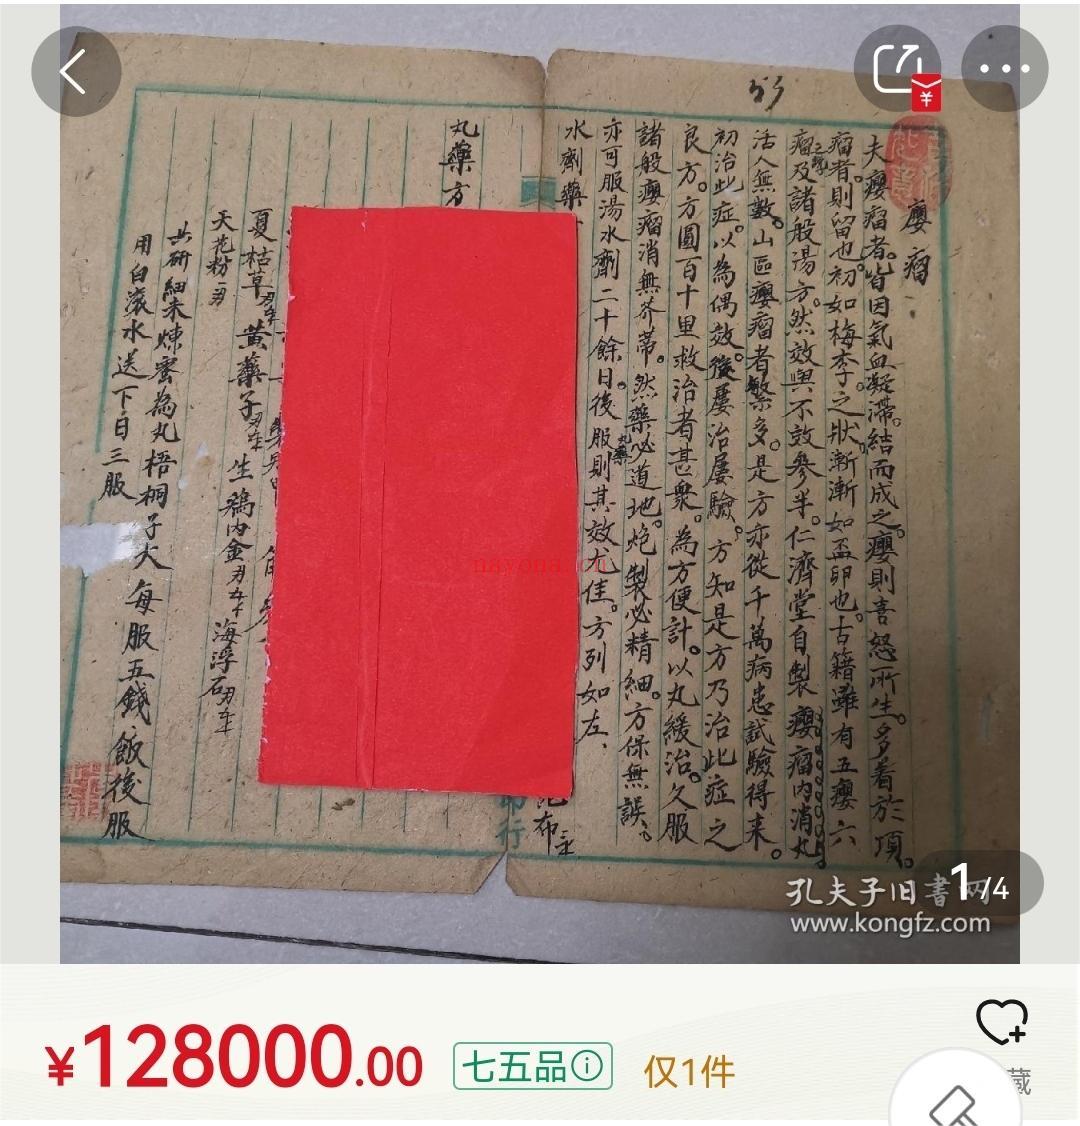 53
癭瘤
夫癭瘤者。皆因氣血凝滯。結而成之。癭則喜怒所生。多着於項。
瘤者。則留也。初如梅李之狀。漸漸如盃卵也。古籍雖有五癭六
瘤及諸般湯方。然效與不效參半。仁濟堂自製癭瘤内消丸
活人無數。山區癭瘤者繁多。是方亦從千萬病患試驗得来。
初治此症。以為偶效。後屢治屢驗。方知是方乃治此症之
良方。方圓百十里救治者甚衆。為方便計。以丸緩治。久服
諸般癭瘤消無芥蒂。然藥必道地。炮製必精細。方保無誤。
亦可服湯水劑二十餘日。後服丸藥則其效尤佳。方列如左、
水劑藥
丸藥方
夏枯草 黄藥子 生鷄内金 海浮石
天花粉
共研細末煉蜜為丸梧桐子大每服五錢飯後服
用白滚水送下日三服
nayona.cn
孔夫子旧书网
www.kongfz.com
1/4
¥128000.00
七五品
仅1件
藏